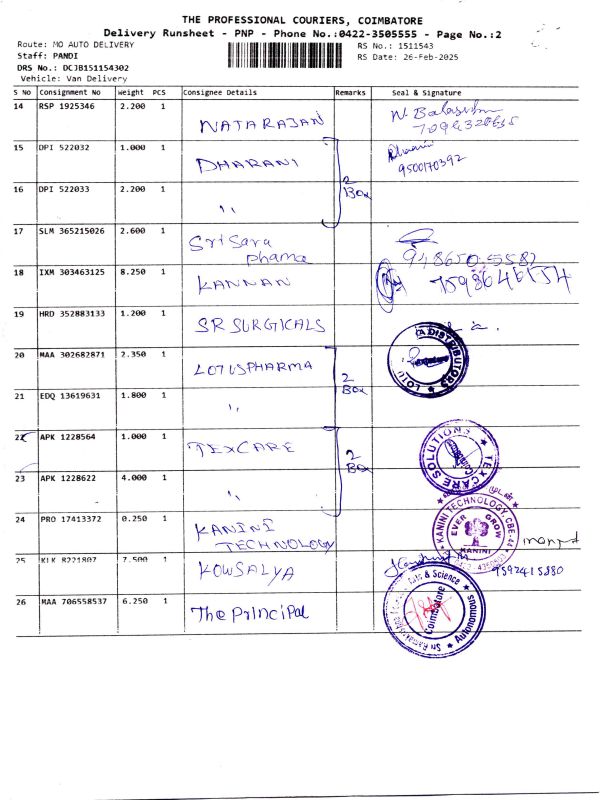 THE PROFESSIONAL COURIERS, COIMBATORE
Delivery Runsheet - PNP - Phone No.:0422-3505555 - Page No.:2
Route: MO AUTO DELIVERY RS No.: 1511543
Staff: PANDI RS Date: 26-Feb-2025
DRS No.: DCJB151154302
Vehicle: Van Delivery
S No Consignment No Weight PCS Consignee Details Remarks Seal & Signature
14 RSP 1925346 2.200 1 NATARAJAN
15 DPI 522032 1.000 1 DHARANI 9500170392
16 DPI 522033 2.200 1 " 2 Box
17 SLM 365215026 2.600 1 Sri Sara Pharma
18 IXM 303463125 8.250 1 KANNAN
19 HRD 352883133 1.200 1 SR SURGICALS
20 MAA 302682871 2.350 1 LOTUS PHARMA 2 Box
DISTRIBUTORS
21 EDQ 13619631 1.800 1 "
22 APK 1228564 1.000 1 TEXCARE 2 Box
TEXCARE SOLUTIONS
23 APK 1228622 4.000 1 "
24 PRO 17413372 0.250 1 KANINI TECHNOLOGY
KANINI TECHNOLOGY CBE-44
EVER GROW
KANINI
25 KLK 8221807 7.500 1 KOWSALYA
26 MAA 706558537 6.250 1 The Principal
Arts & Science
Autonomous
Coimbatore